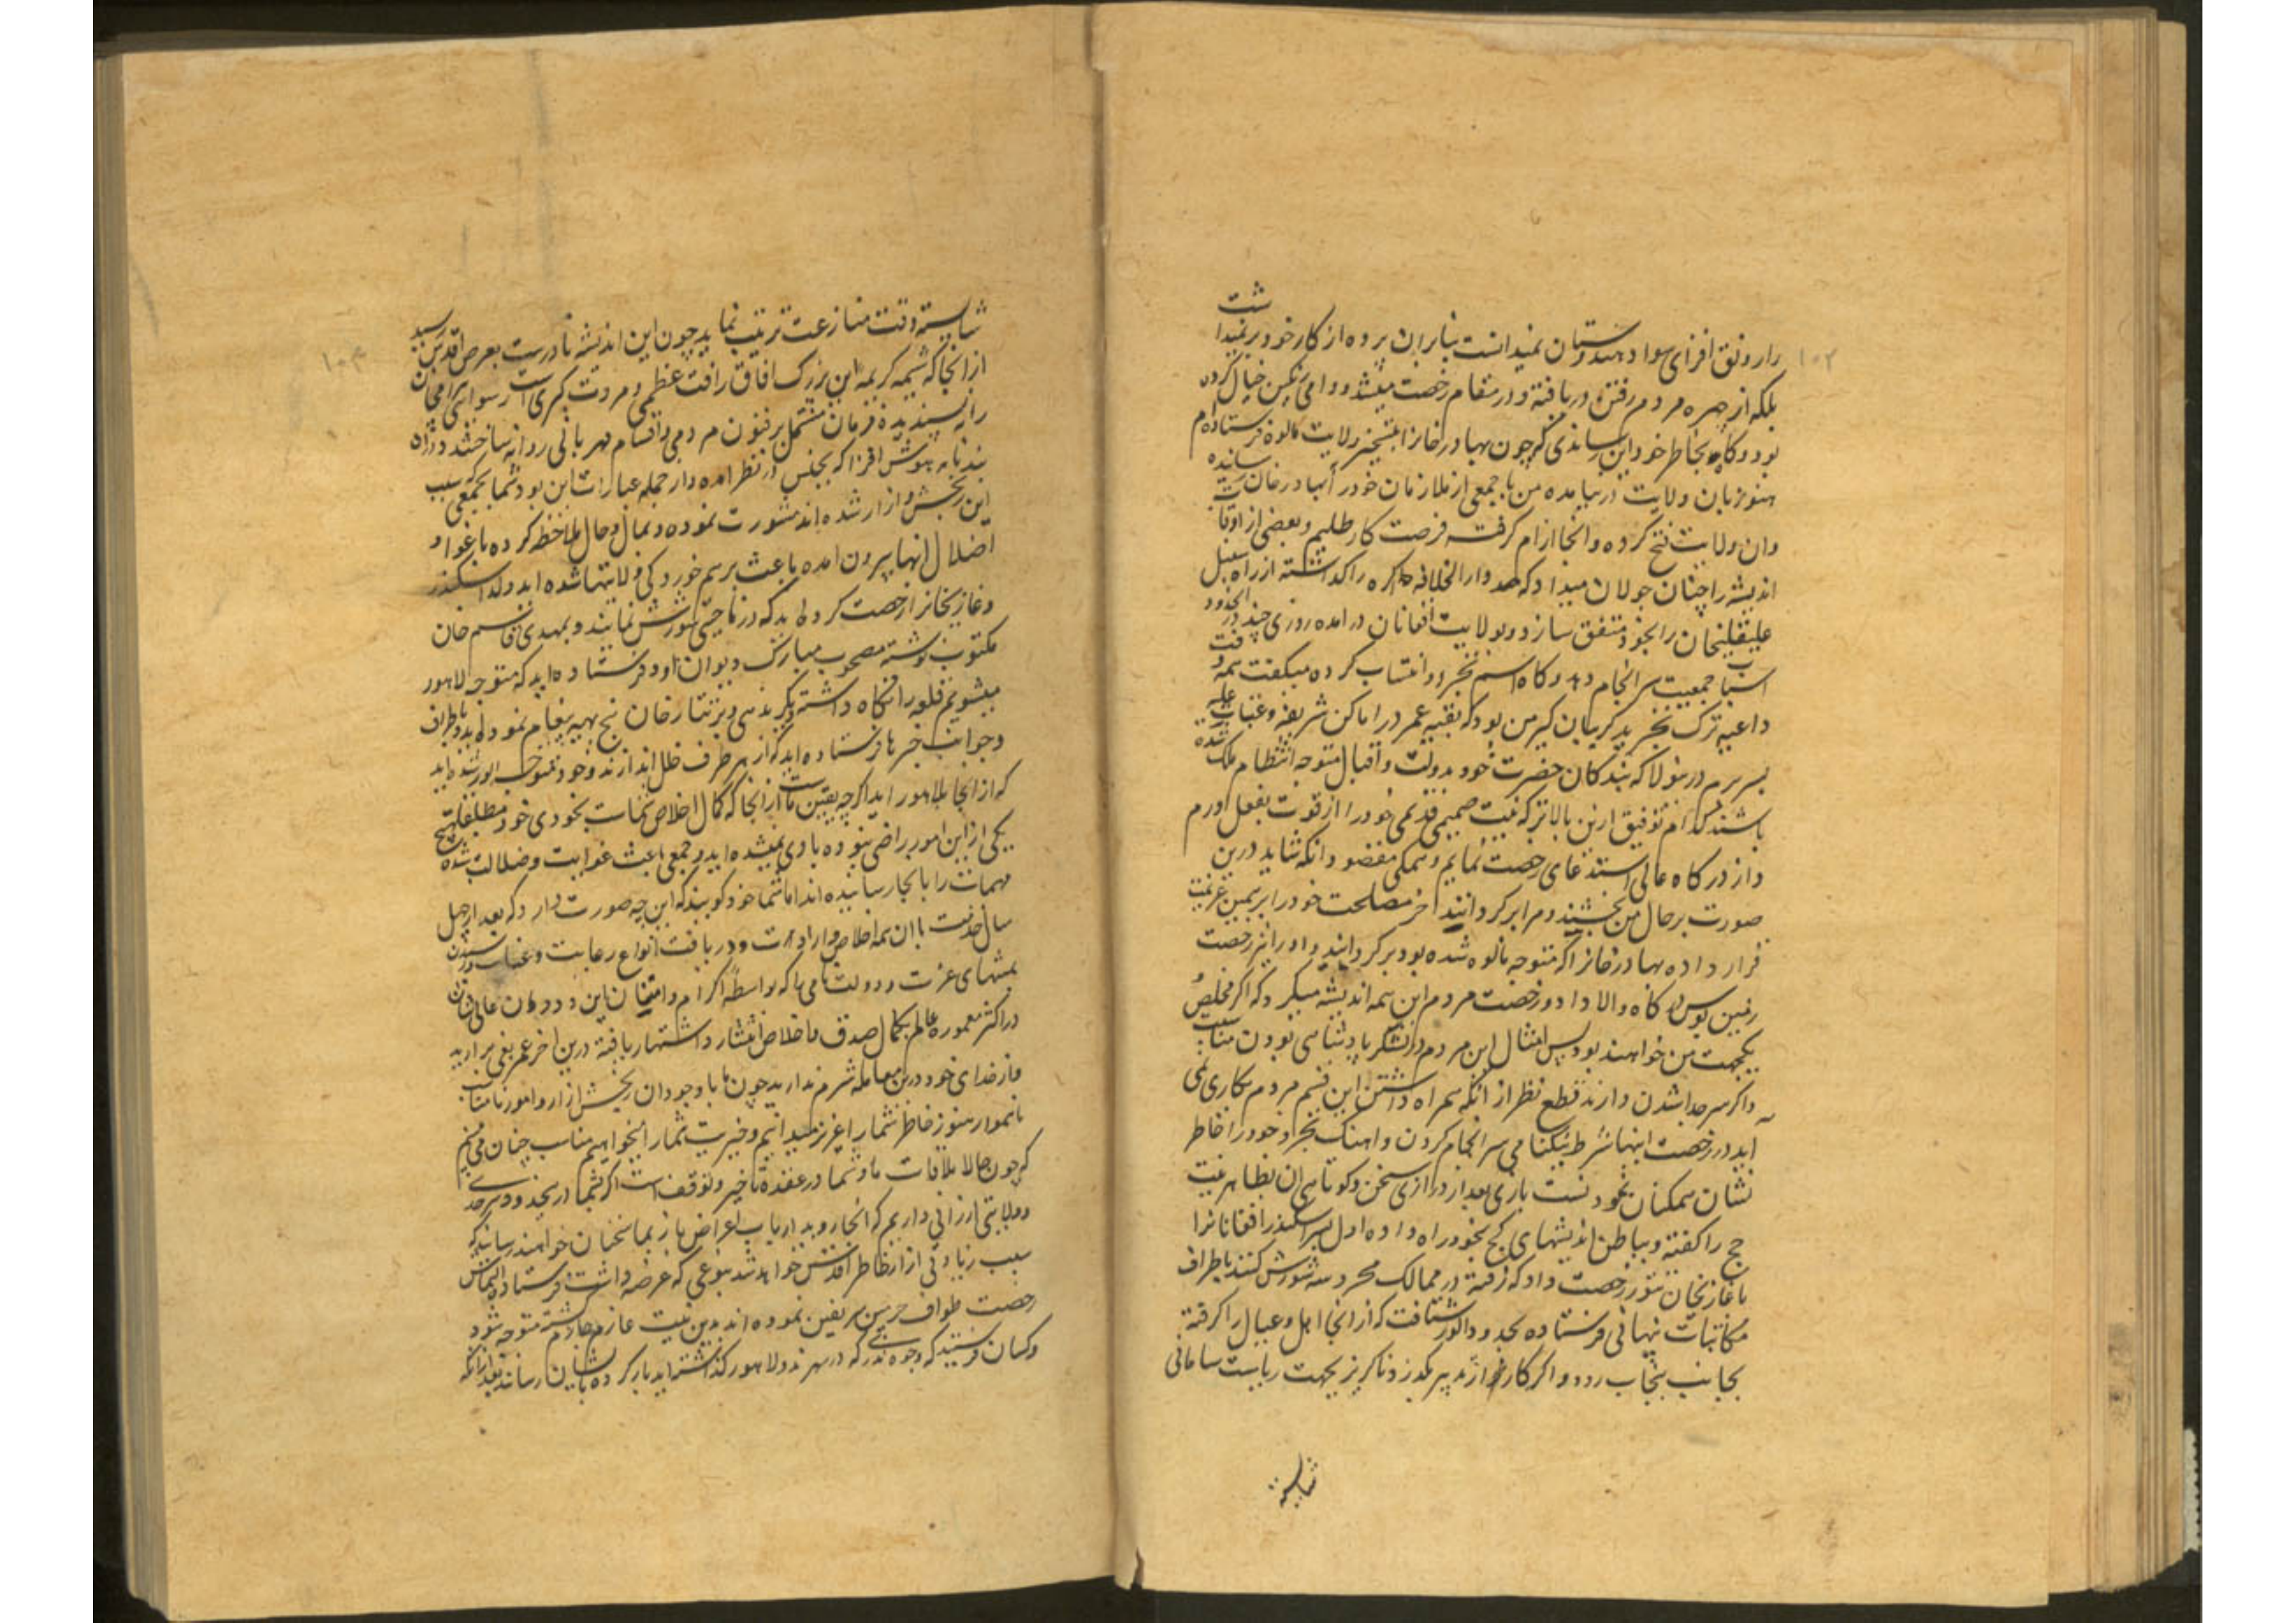 ۱۰۲
را رونق افزای سواد هندوستان نمیدانست بنابران پرده از کار خود برنمیداشت
بلکه از چهره مردم رفتن دریافته و در مقام رخصت میشد و وامی رنگین خیال کرده
بود و گاه بخاطر خود این رساندی که چون بهادر خانرا بتسخیر ولایت مالوه فرستاده‌ام
هنوز بان ولایت در نیامده من با جمعی از ملازمان خود را بهادر خان رسانیده
وان ولایت فتح کرده و انجا ارام گرفته فرصت کار طلبیم و بعضی از اوقات
اندیشه را چنان جولان میداد که دار الخلافه اکره را گذاشته از راه سنبل
علیقلیخان را بخود متفق سازد و بولایت افغانان در امده روزی چند در انحدود
اسباب جمعیت سرانجام دهد و گاه اسم تجرد و انتساب کرده میگفت همه وقت
داعیه ترک تجرید گریبان گیر من بود که بقیه عمر در اماکن شریفه و عتبات علیه
بسر برم درینولا که بندگان حضرت خود بدولت و اقبال متوجه انتظام ملک شده
باشند کدام توفیق ازین بالاتر که نیت صمیمی قدیمی خود را از قوت بفعل اورم
و از درگاه عالی استدعای رخصت نمایم و همگی مقصود انکه شاید درین
صورت بر حال من بخشند و مرا برگردانند اخر مصلحت خود را بر همین عزیمت
قرار داده بهادر خانرا که متوجه مالوه شده بود برگردانید و او را نیز رخصت
زمین بوس درگاه والا داد و رخصت مردم این همه اندیشه میکرد که اگر مخلص
یکجهت من خواهند بود پس امثال این مردم در لشکر پادشاهی بودن مناسب
و اگر سر جدا شدن دارند قطع نظر از انکه همراه داشتن این قسم مردم بکاری نمی
اید در رخصت اینها شرط نیکنامی سرانجام کردن و اهنگ تجرد خود را خاطر
نشان همگنان نمودنست باری بعد از درازی سخن و کوتاهی ان بظاهر نیت
حج را گفته و بباطن اندیشهای کج بخود راه داده اول پسر اسکندر افغانانرا
با غازیخان تنور رخصت داد که رفته در ممالک محروسه شورش کنند باطراف
مکاتبات پنهانی فرستاده بحدود الور شتافت که از انجا اهل و عیال را گرفته
بجانب پنجاب رود و اگر کار از تدبیر بگذرد ناگزیر بجهت ریاست سامانی
شایسته

۱۰۳
شایسته وقت منازعت ترتیب نماید چون این اندیشه نادرست بعرض اقدس رسید
از انجا که شیمه کریمه این بزرگ افاق رافت عظمی و مروت کبری است رسوایی بیرامخان
را نه پسندیده فرمان مشتمل بر فنون مردمی و اقسام مهربانی روانه ساختند و ان
پندنامه هوش افزا که بجنس در نظر امده و از جمله عبارات این بود شما بجمعی که سبب
این رنجش و ازار شده اند مشورت نموده و بمال و حال ملاحظه کرده باغوا و
اضلال انها بیرون امده باعث برهم خوردگی ولایتها شده اید ولد اسکندر
و غازیخانرا رخصت کرده اید که در نواحی شورش نمایند و بمهدی قاسم خان
مکتوب نوشته مصحوب مبارک دیوان او فرستاده اید که متوجه لاهور
میشویم قلعه را نگاه داشته بدیگری ندهی و بر تتار خان پنج بهیه پیغام نموده اید و باطراف
و جوانب خبرها فرستاده اید که از هر طرف خلل اندازند و خود متوجه الور شده اید
که از انجا بلاهور اید اگرچه یقین ماست از انجا که کمال اخلاص شماست بخودی خود مطلقا بهیچ
یکی از این امور راضی نبوده بادی نشده اید و جمعی باعث غوایت و ضلالت شده
مهمات را بانجا رسانیده اند اما شما خود گویند که این چه صورت دارد که بعد از چهل
سال خدمت با ان همه اخلاص و ارادت و دریافت انواع رعایت و عنایت و رسیدن
بمنتهای عزت و دولت نامی ها که بواسطه اکرام و امتنان این دودمان عالیشان
در اکثر معموره عالم بکمال صدق و اخلاص انتشار و اشتهار یافته درین اخر عمر بغی برارید
و از خدای خود درین معامله شرم ندارید چون ما با وجود ان رنجش ازار و امور نامناسب
ناهموار هنوز خاطر شما را عزیز میدانیم و خیریت شما را میخواهیم مناسب چنان می‌بینیم
که چون حالا ملاقات ما و شما در عقده تاخیر و توقف است اگر شما را بحدود سرحد
و ولایتی ارزانی داریم که انجا روید ارباب اغراض باز بما سخنان خواهند رسانید که
سبب زیادتی ازار خاطر اقدس خواهد شد بنوعی که عرضه داشت فرستاده التماس
رخصت طواف حرمین شریفین نموده اند بدین نیت عازم و جازم گشته متوجه شود
و کسان فرستید که وجوه نقدی که در سهرند و لاهور گذاشته اید بار کرده بایشان رسانند بعد از انکه